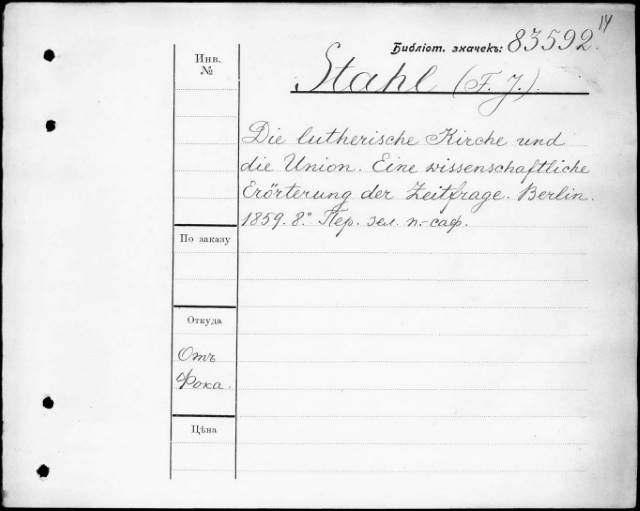 14
Библіот. значекъ: 83592.
Инв.
№
Stahl (F. J.).
Die lutherische Kirche und
die Union. Eine wissenschaftliche
Erörterung der Zeitfrage. Berlin.
1859. 8.° Пер. зел. п.-саф.
По заказу
Откуда
Отъ
Фока.
Цѣна